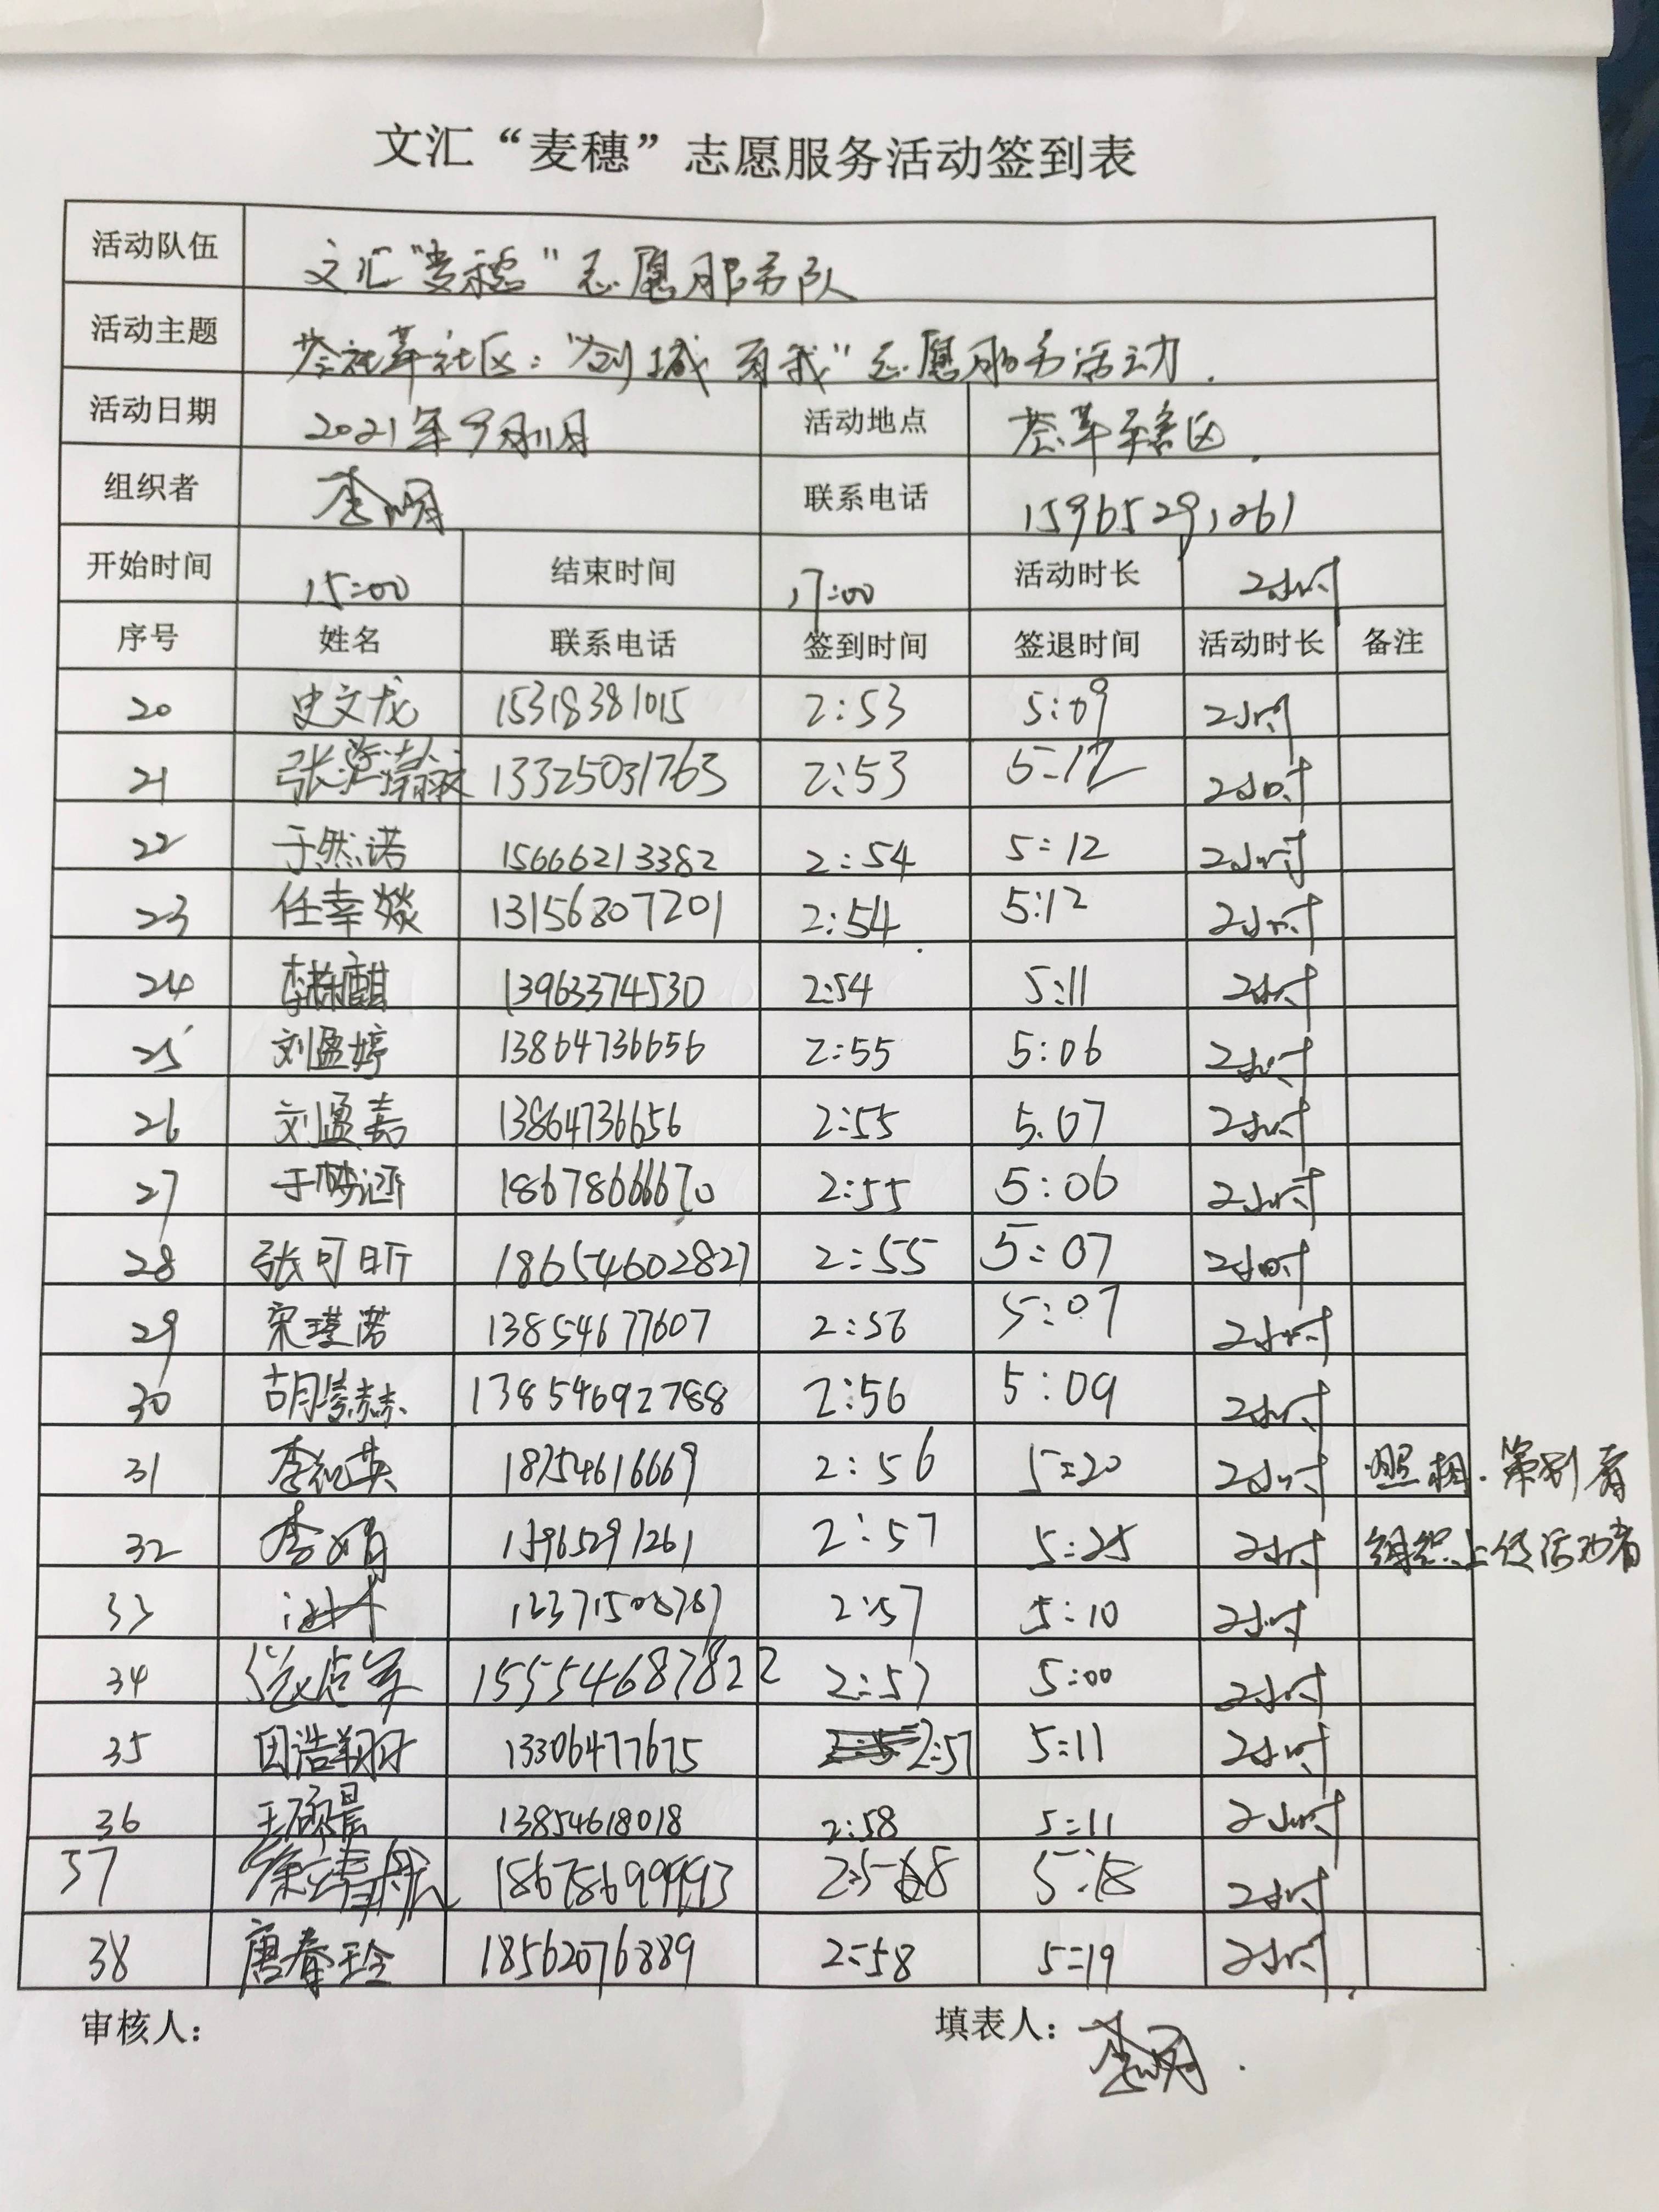 文汇“麦穗”志愿服务活动签到表
活动队伍 文汇“麦穗”志愿服务队
活动主题 社区：“创城有我”志愿服务活动.
活动日期 2021年9月11日 活动地点 辖区.
组织者 李娟 联系电话 15965291261
开始时间 15:00 结束时间 17:00 活动时长 2小时
序号 姓名 联系电话 签到时间 签退时间 活动时长 备注
20 史文龙 15318381015 2:53 5:09 2小时
21 张 13325031763 2:53 5:12 2小时
22 于然诺 15666213382 2:54 5:12 2小时
23 任幸燚 13156807201 2:54 5:12 2小时
24 李 麒 13963374530 2:54 5:11 2小时
25 刘盈婷 13864736656 2:55 5:06 2小时
26 刘盈嘉 13864736656 2:55 5:07 2小时
27 于梦涵 18678666670 2:55 5:06 2小时
28 张可昕 18654602827 2:55 5:07 2小时
29 宋瑾诺 13854677607 2:56 5:07 2小时
30 胡 13854692788 2:56 5:09 2小时
31 李红英 18754616669 2:56 5:20 2小时 照相.策划者
32 李娟 15965291261 2:57 5:25 2小时 组织上传活动者
33 2:57 5:10 2小时
34 15554687822 2:57 5:00 2小时
35 田浩翔 13306477675 2:57 5:11 2小时
36 王硕晨 13854618018 2:58 5:11 2小时
37 徐 18678699993 2:58 5:18 2小时
38 唐春玲 18562076889 2:58 5:19 2小时
审核人： 填表人：李娟.